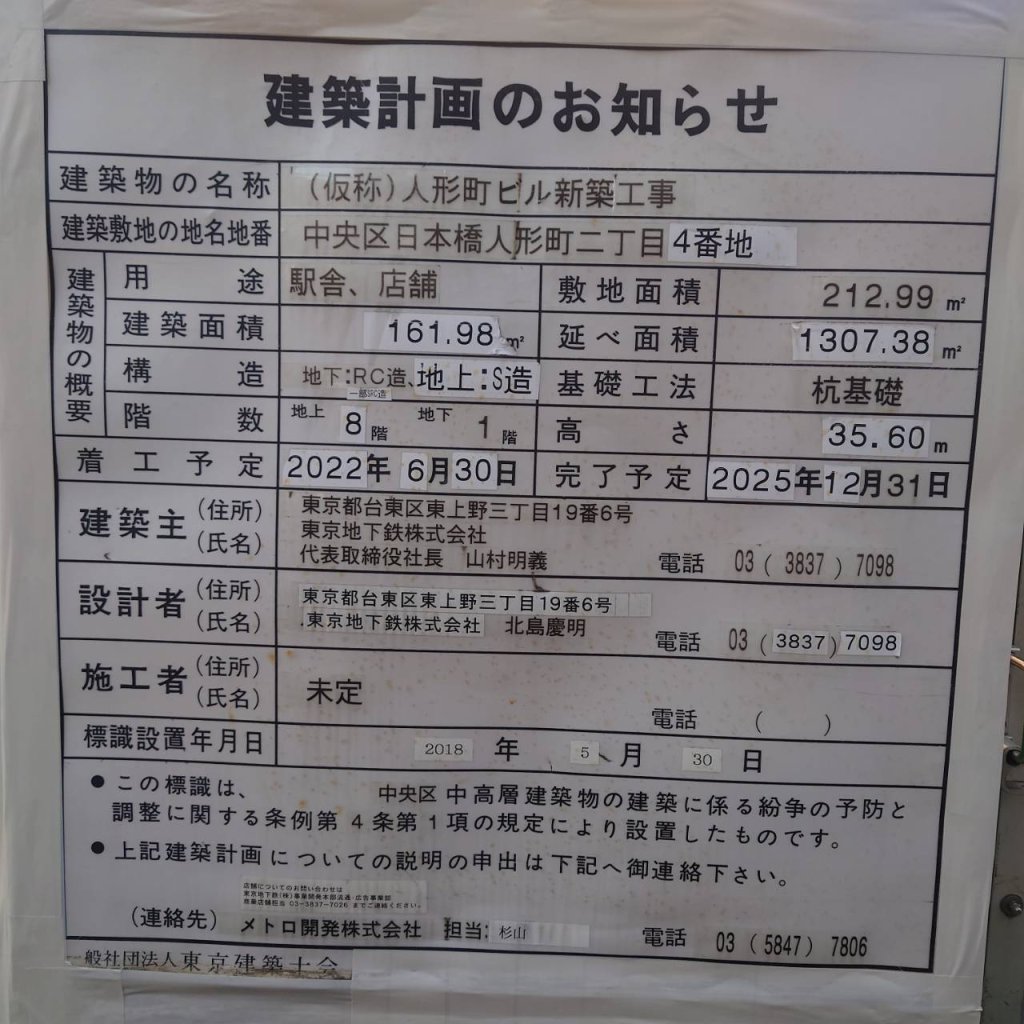 建築計画のお知らせ
建築物の名称 (仮称)人形町ビル新築工事
建築敷地の地名地番 中央区日本橋人形町二丁目4番地
建築物の概要
用途 駅舎、店舗 敷地面積 212.99 m²
建築面積 161.98 m² 延べ面積 1307.38 m²
構造 地下:RC造、地上:S造 基礎工法 杭基礎
一部SRC造
階数 地上 8 階 地下 1 階 高さ 35.60 m
着工予定 2022年 6月30日 完了予定 2025年12月31日
建築主 (住所) 東京都台東区東上野三丁目19番6号
東京地下鉄株式会社
(氏名) 代表取締役社長 山村明義 電話 03 ( 3837 ) 7098
設計者 (住所) 東京都台東区東上野三丁目19番6号
(氏名) 東京地下鉄株式会社 北島慶明 電話 03 (3837) 7098
施工者 (住所)
(氏名) 未定 電話 ( )
標識設置年月日 2018 年 5 月 30 日
● この標識は、 中央区 中高層建築物の建築に係る紛争の予防と
調整に関する条例第4条第1項の規定により設置したものです。
● 上記建築計画についての説明の申出は下記へ御連絡下さい。
店舗についてのお問い合わせは
東京地下鉄(株)事業開発本部流通・広告事業部
商業店舗担当 03-3837-7026 までご連絡ください。
(連絡先) メトロ開発株式会社 担当: 杉山 電話 03 (5847) 7806
一般社団法人東京建築士会